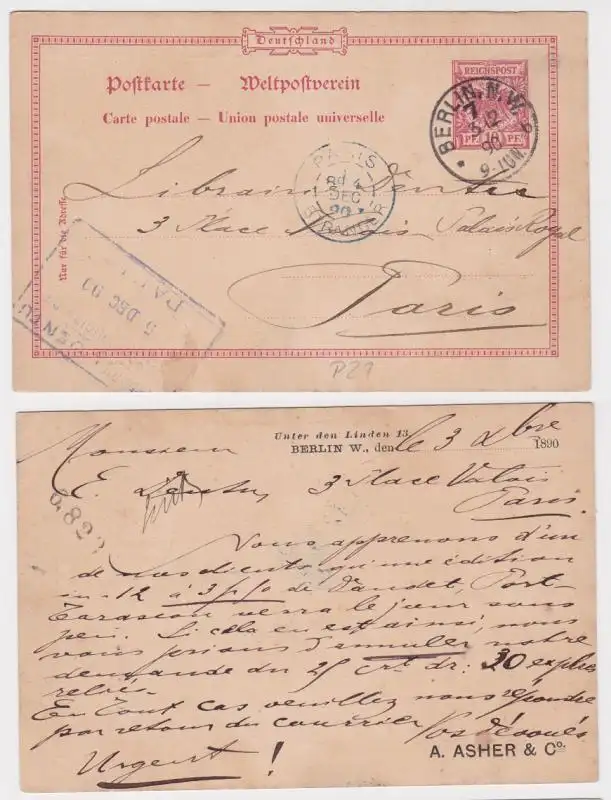 Deutschland
REICHSPOST
10 PF
Postkarte – Weltpostverein
Carte postale – Union postale universelle
BERLIN. N.W.
7
12
90
9-10N.
PARIS
4
DEC
90
ETRANGER
Librairie Dentu
3 Place Valois Palais Royal
Paris
Nur für die Adresse
5 DEC 90
P21
Unter den Linden 13.
BERLIN W., den le 3 Xbre 1890
Monsieur
E. Dentu, 3 Place Valois
Paris
Vous apprenons d'un
de nos clients qu'une édition
in-12 à 3 f 50 de Daudet, Port
Tarascon verra le jour sous
peu. Si cela en est ainsi, nous
vous prions d'annuler notre
demande du 25 crt dr: 30 explres
reliés.
En tout cas veuillez nous répondre
par retour du courrier. Vos dévoués
Urgent!
A. ASHER & Co.